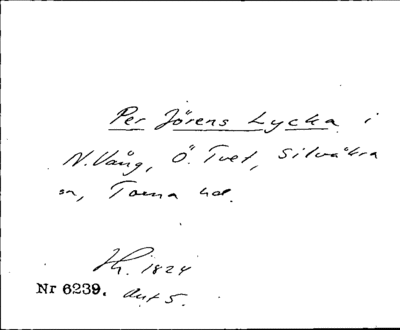 Per Jörens Lycka i
N. Vång, Ö. Tvet, Silvåkra
sn, Torna hd.
1824
Nr 6239. Akt 5.